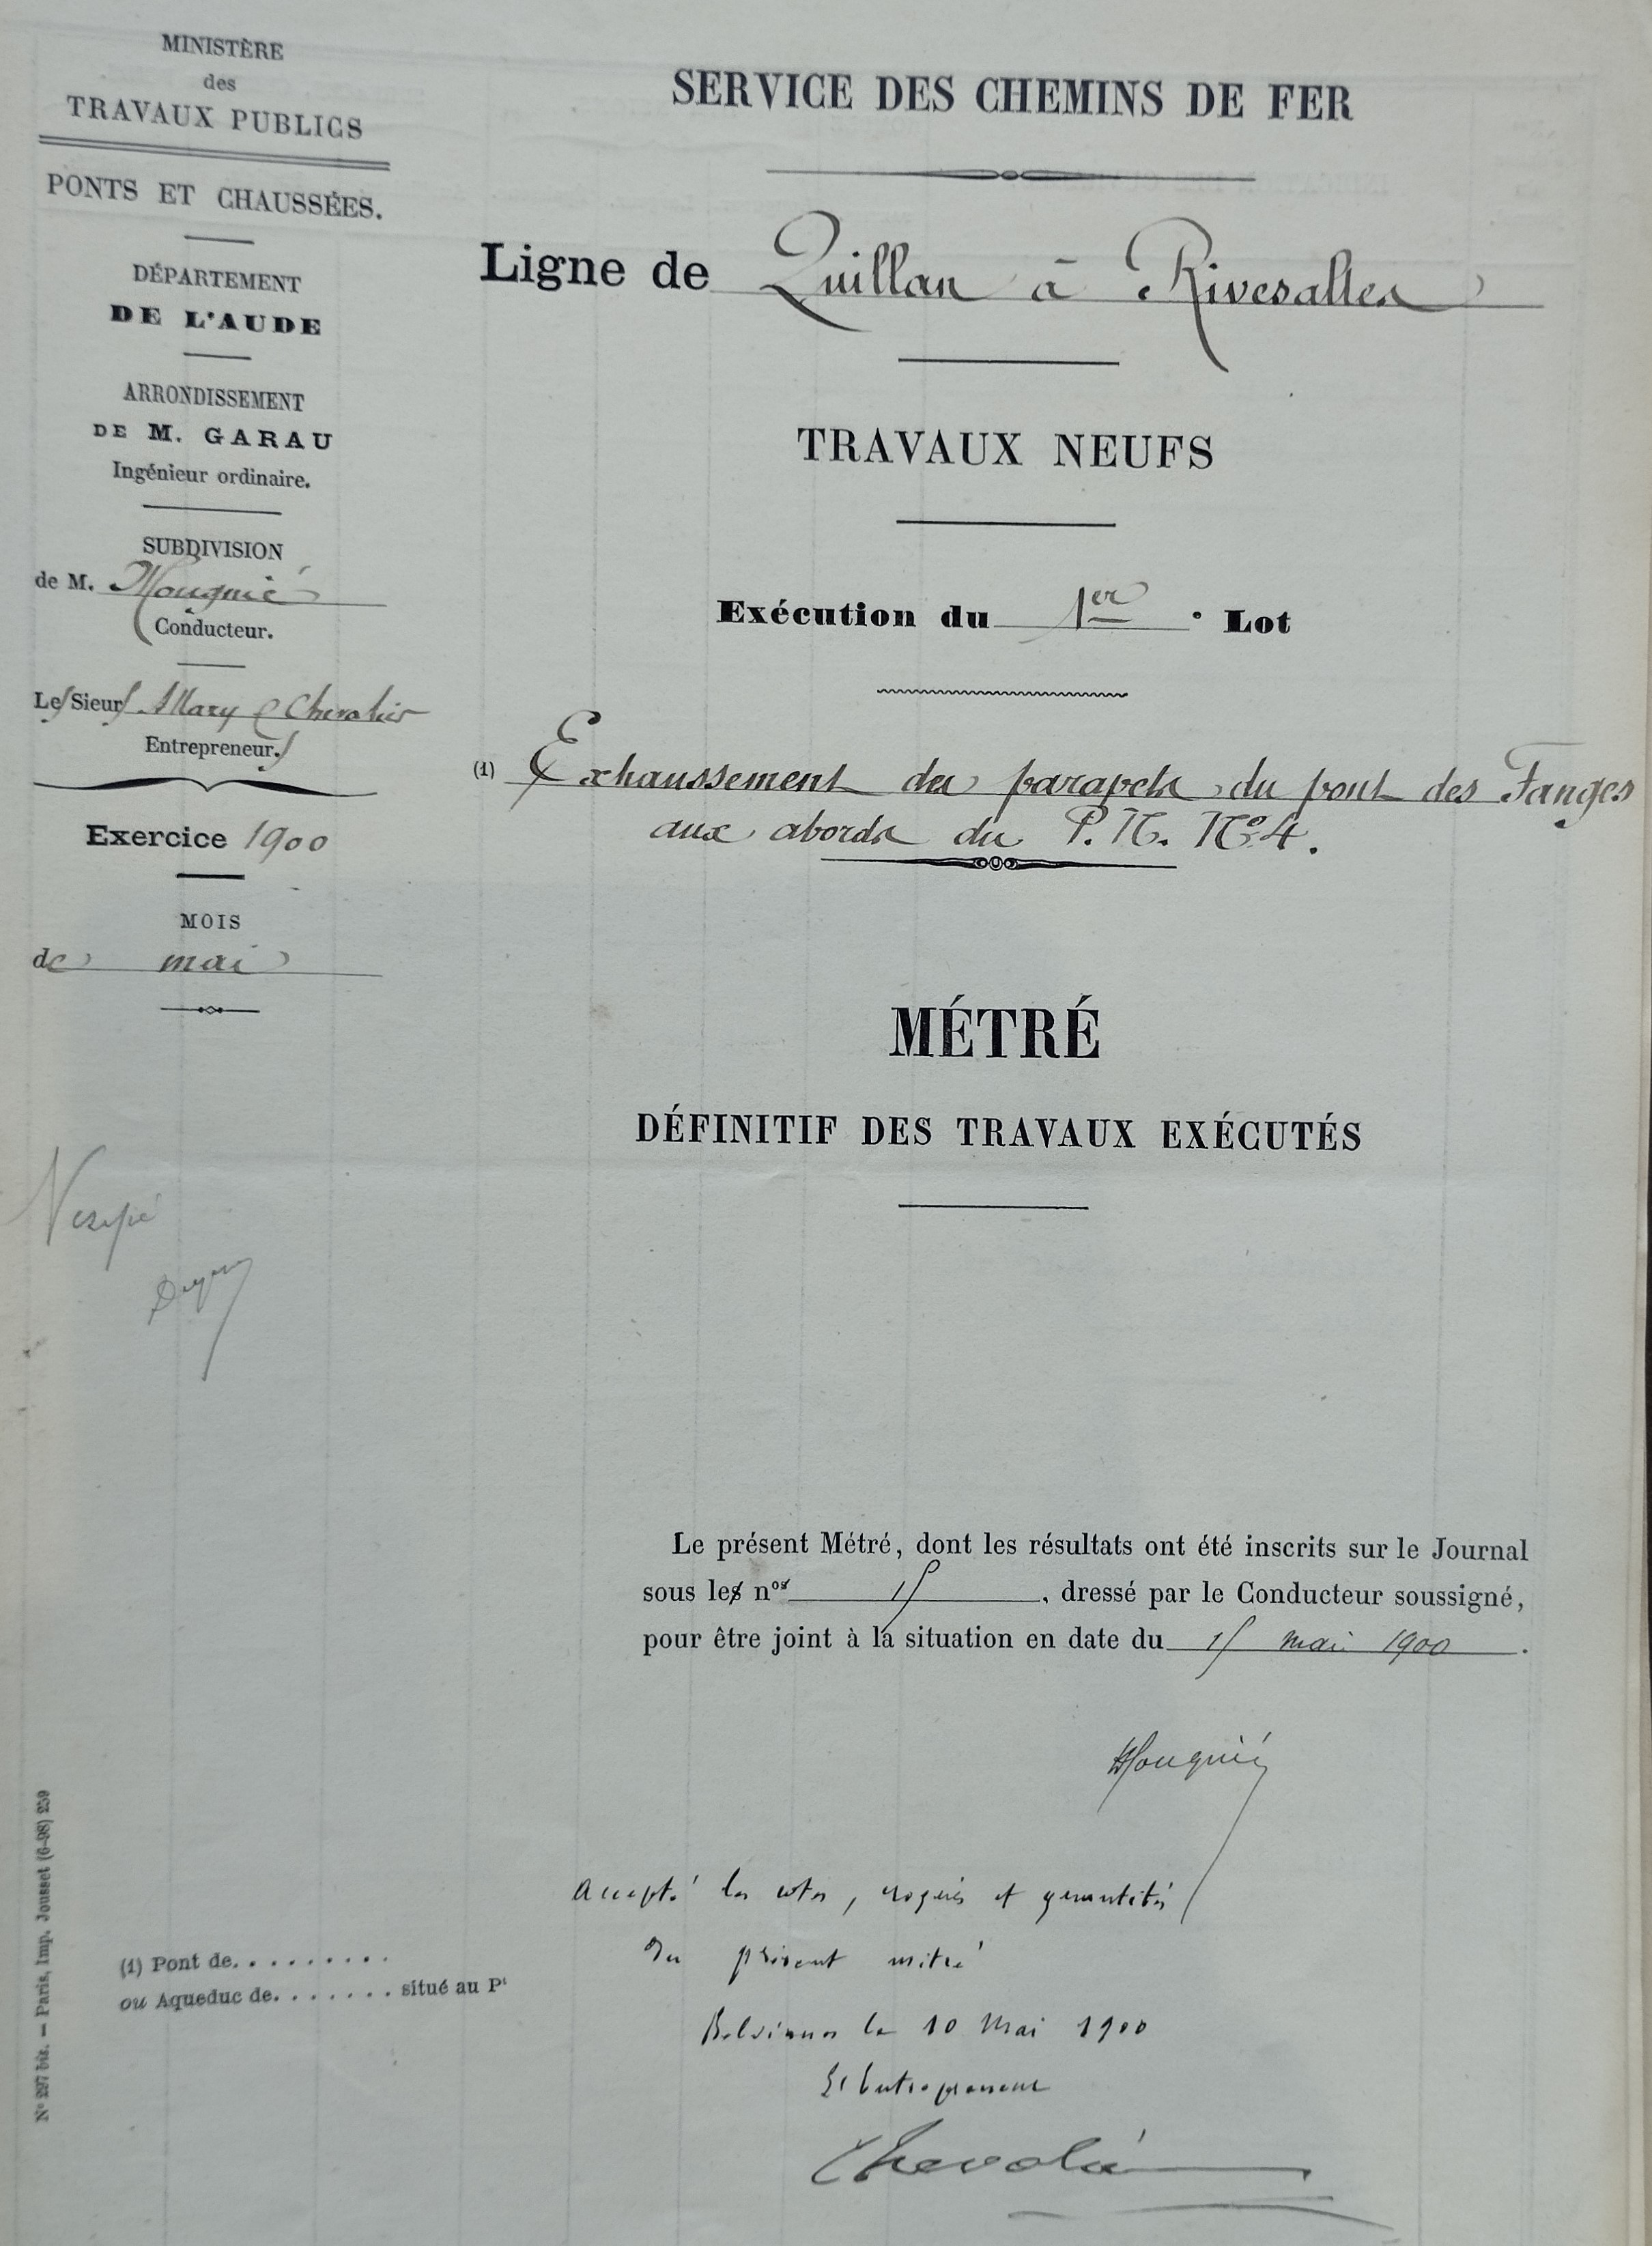 MINISTÈRE
des
TRAVAUX PUBLICS
PONTS ET CHAUSSÉES.
DÉPARTEMENT
DE L'AUDE
ARRONDISSEMENT
DE M. GARAU
Ingénieur ordinaire.
SUBDIVISION
de M. Mouquié
Conducteur.
Les Sieurs Mary & Chevalier
Entrepreneurs
Exercice 1900
MOIS
de mai
Vérifié
SERVICE DES CHEMINS DE FER
Ligne de Quillan à Rivesaltes
TRAVAUX NEUFS
Exécution du 1er Lot
(1) Exhaussement des parapets du pont des Fanges
aux abords du P. N. No 4.
MÉTRÉ
DÉFINITIF DES TRAVAUX EXÉCUTÉS
Le présent Métré, dont les résultats ont été inscrits sur le Journal
sous les nos 15, dressé par le Conducteur soussigné,
pour être joint à la situation en date du 15 mai 1900.
Mouquié
Accepté les cotes, croquis et quantités
du présent métré
Belvianes le 10 Mai 1900
L'Entrepreneur
Chevalier
(1) Pont de. . . . . . . . .
ou Aqueduc de. . . . . . . situé au Pt
No 297 bis. — Paris, Imp. Jousset (6-98) 259